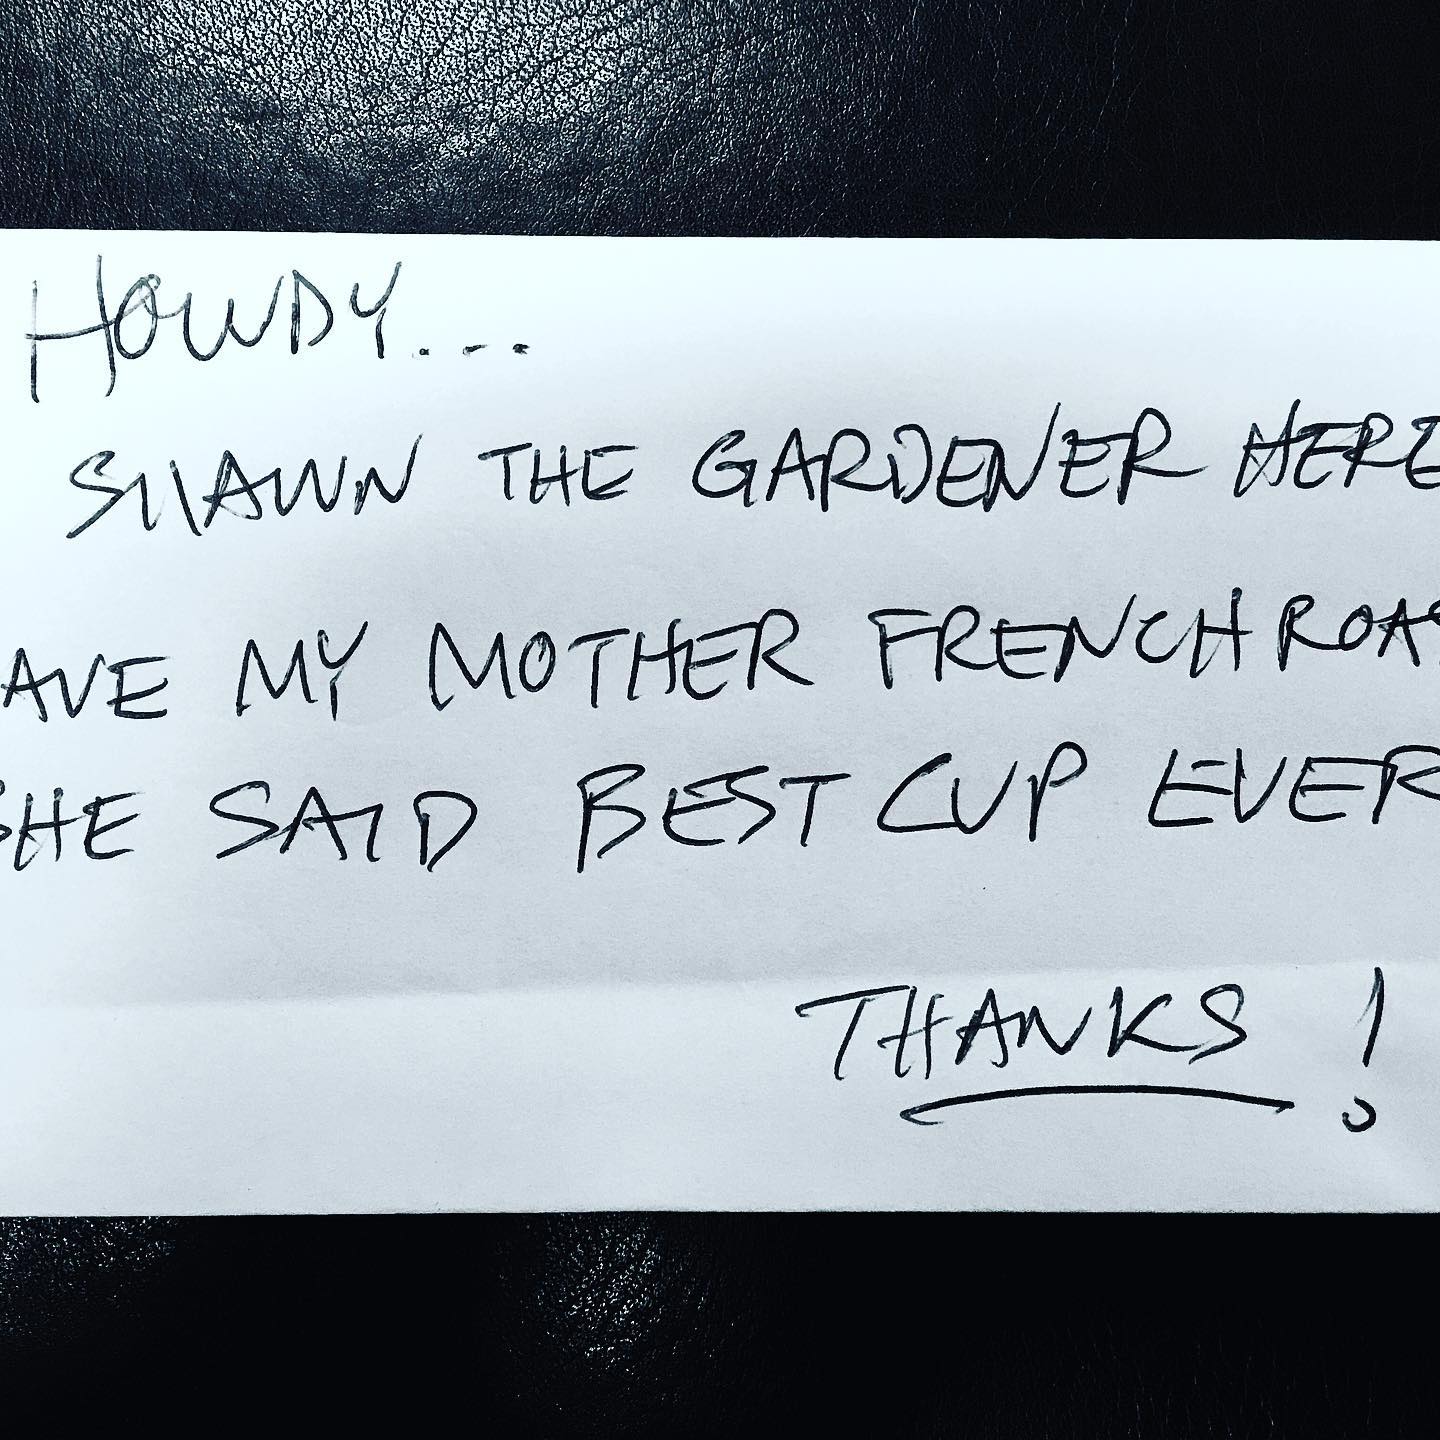 HOWDY...
SHAWN THE GARDENER HERE
AVE MY MOTHER FRENCH ROAS
SHE SAID BEST CUP EVER
THANKS!